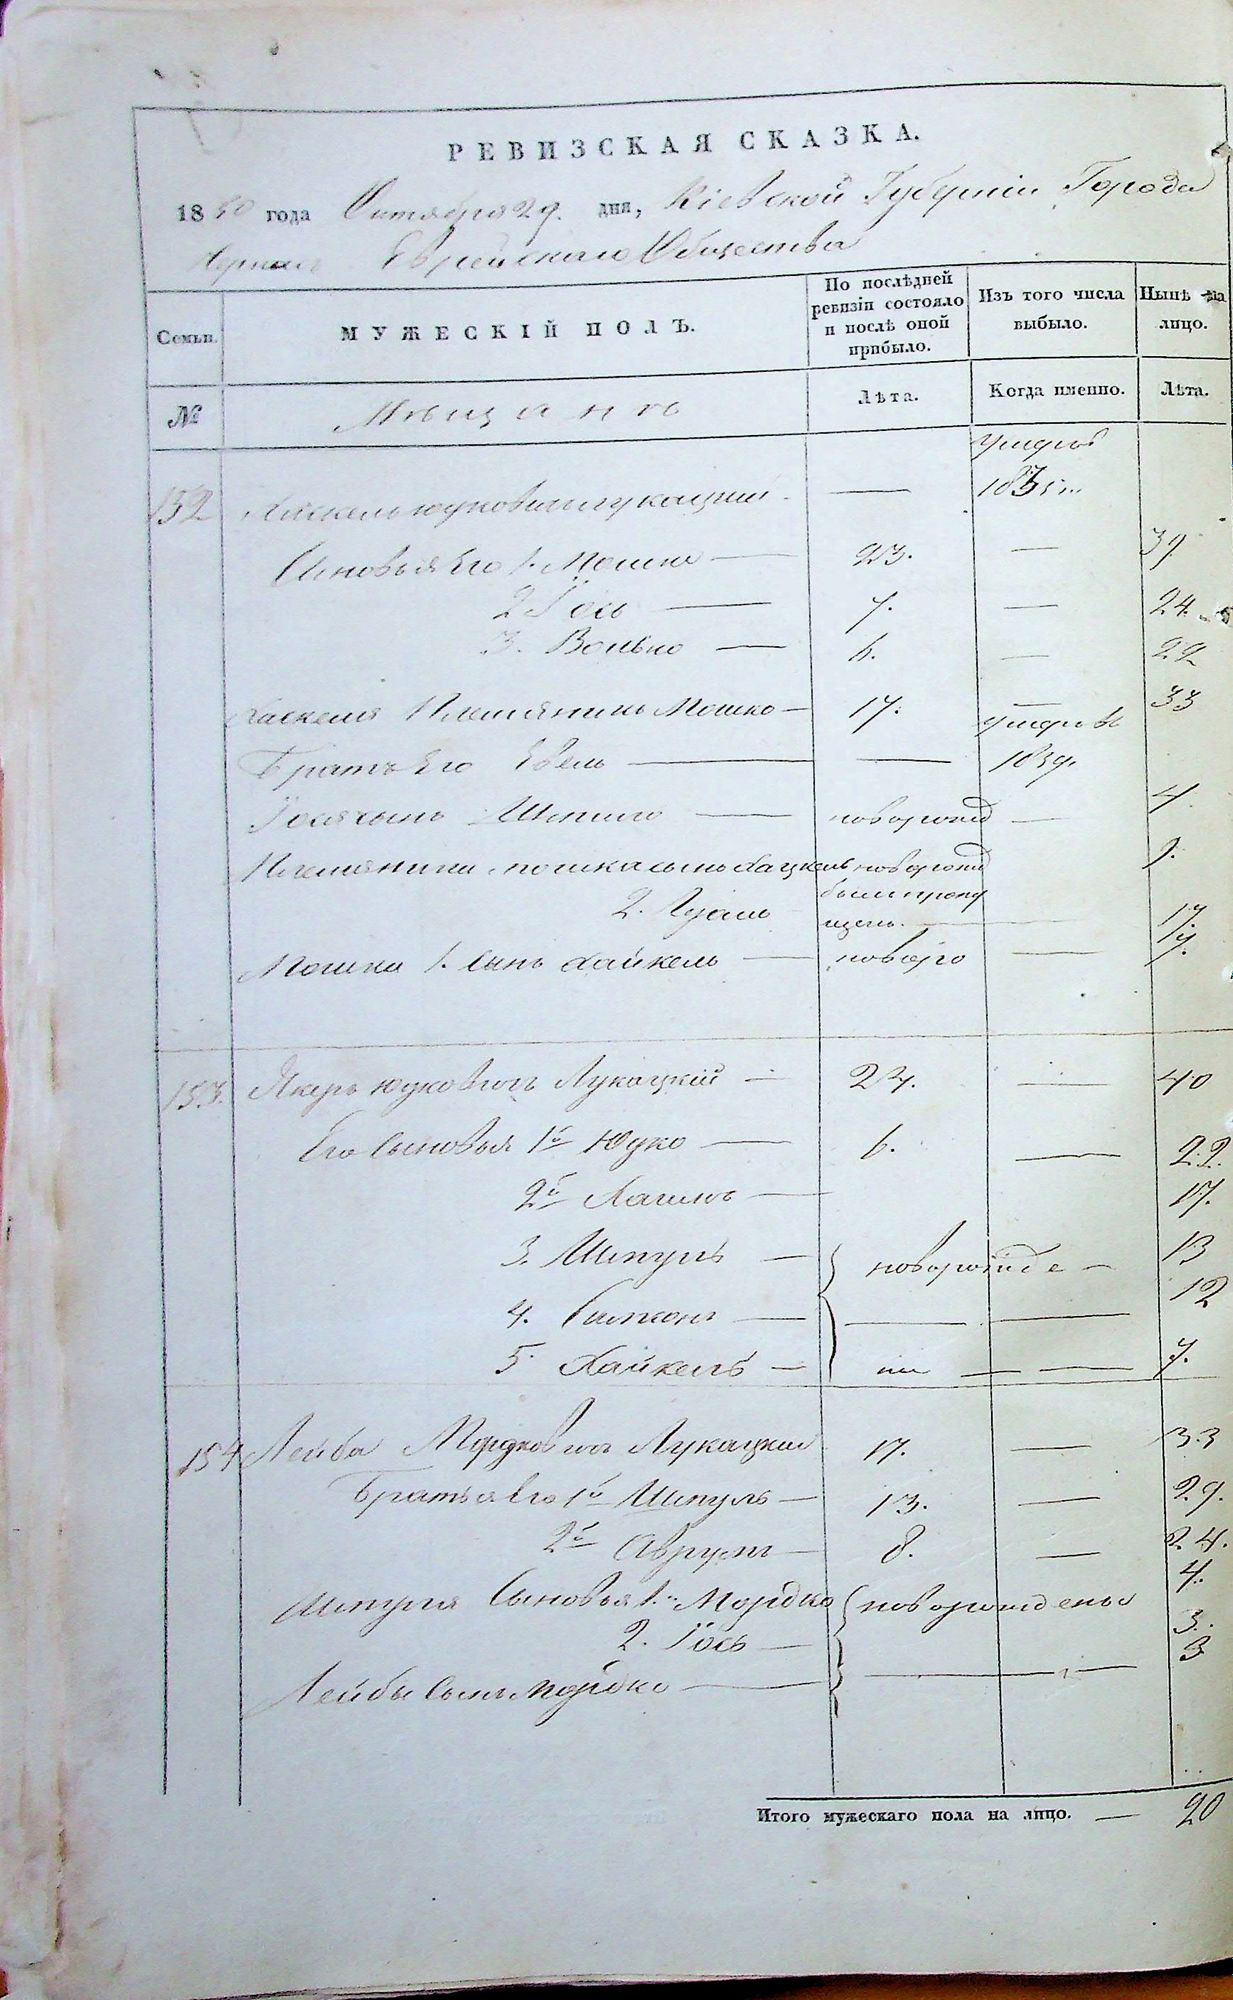 РЕВИЗСКАЯ СКАЗКА.
1850 года Октября 29. дня, Кіевской Губерніи Города
Еврейскаго Общества
Семьи.
МУЖЕСКІЙ ПОЛЪ.
По послѣдней ревизіи состояло и послѣ оной прибыло.
Изъ того числа выбыло.
Нынѣ на лицо.
№
Мѣщанъ
Лѣта.
Когда именно.
Лѣта.
152 Лукацкий — 183
Сыновья Его 1. Мошко — 23. — 39
2 Іось — 7. — 24.
3. Волько — 6. — 22
Хаскеля Племянникъ Мошко — 17. — 33
Братъ Его Евель — — 1839.
Іося сынъ Шмилю — новорожд — 4.
Племянника Мошка сынъ Хацкель новорожд 9.
2. были пропу
щенъ. — 17.
Мошка 1. Сынъ Хайкель — новоро — 7.
153. Янкель Юдковичъ Лукацкій — 24. — 40
Его Сыновья 1й Юдко — 6. — 22.
2й Хаимъ — 17.
3. Шмуль — новорожде — 13
4. Симхонъ — — — 12
5. Хайкель — — — 7.
154 Лейба Мордковичъ Лукацкий 17. — 33
Братья Его 1й Шмуль — 13. — 29.
2й Аврумъ — 8. — 24.
Шмуля Сыновья 1. Мордко новорожденые 4.
2. Іось — 3.
Лейбы Сынъ Мордко — — 3
Итого мужескаго пола на лицо. — 20